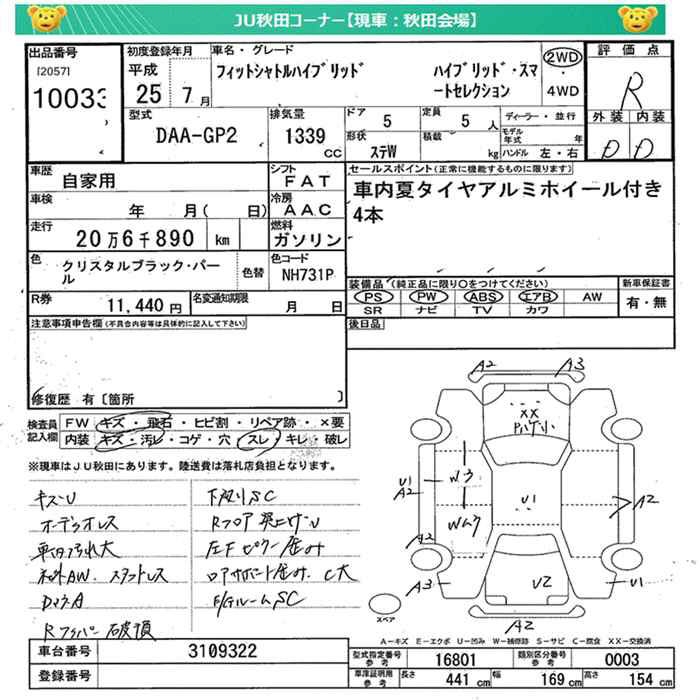 JU秋田コーナー【現車：秋田会場】
出品番号
[2057]
10033
初度登録年月
平成
25 7月
車名・グレード
フィットシャトルハイブリッド ハイブリッド・スマートセレクション
2WD
・
4WD
評価点
R
外装 内装
D D
型式
DAA-GP2
排気量
1339
CC
ドア 5
定員 5 人
形状 ステW
積載 kg
ディーラー・並行
モデル年式 年
ハンドル 左・右
車歴 自家用
シフト FAT
車検 年 月( 日)
冷房 AAC
走行 20万6千890 km
燃料 ガソリン
色 クリスタルブラック・パール
色替
色コード NH731P
R券 11,440円
名変通知期限 月 日
セールスポイント(正常に機能するものに限ります)
車内夏タイヤアルミホイール付き
4本
装備品(純正品に限り○をつけてください)
PS PW ABS エアB AW
SR ナビ TV カワ
新車保証書
有・無
後日品
注意事項申告欄(不具合内容等は具体的に記入して下さい)
修復歴 有〔箇所 〕
検査員記入欄
FW キズ・飛石・ヒビ割・リペア跡・×要
内装 キズ・汚レ・コゲ・穴・スレ・キレ・破レ
※現車はJU秋田にあります。陸送費は落札店負担となります。
キズ・U
オーデオレス
車内汚れ大
社外AW.
下廻りSC
Rフロア突上げU
C大
F/GルームSC
A2 A3
XX
U1
A2
U1
A2
A2
A3
U2
U1
A2
スペア
A－キズ E－エクボ U－凹み W－補修跡 S－サビ C－腐食 XX－交換済
車台番号 3109322
登録番号
型式指定番号 参考 16801
類別区分番号 参考 0003
車庫証明用 参考 長さ 441 cm 幅 169 cm 高さ 154 cm